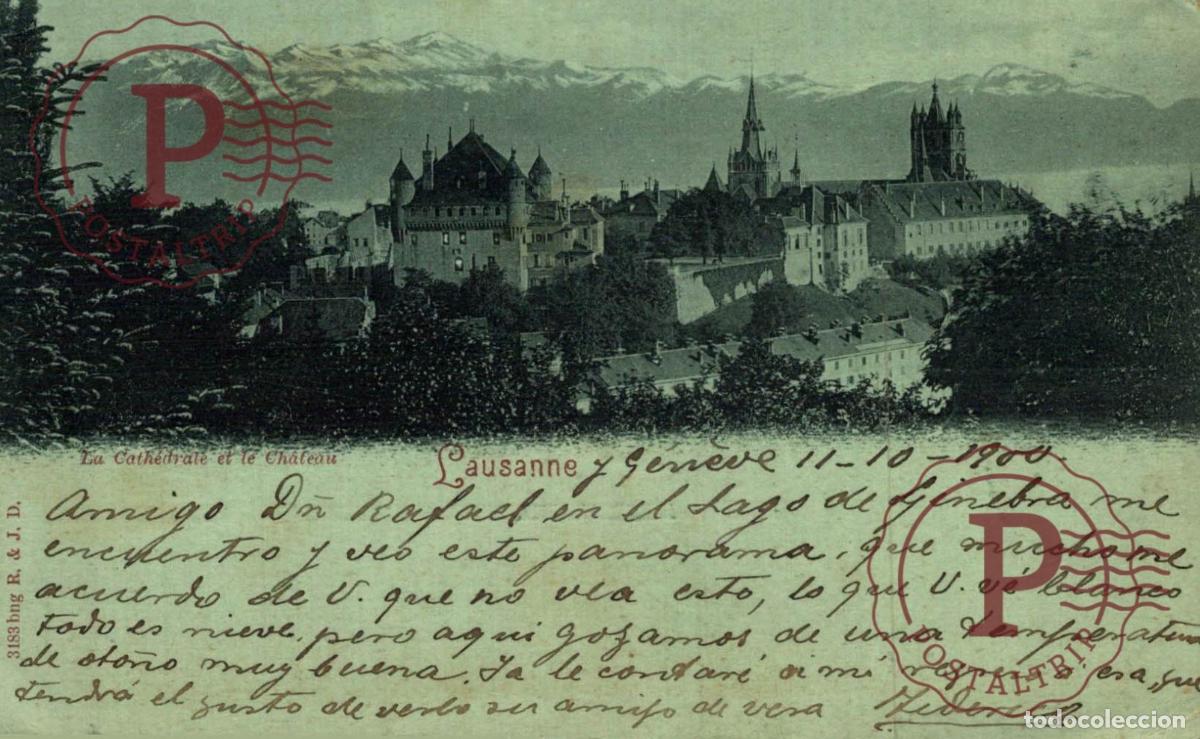 P
POSTALTRIP
La Cathédrale et le Château
Lausanne y Genéve 11-10-1900.
Amigo Dn Rafael en el Lago de Ginebra me
encuentro y veo este panorama, que mucho me
acuerdo de V. que no vea esto, lo que V. vé blanco
todo es nieve, pero aqui gozamos de una temperatura
de otoño muy buena. Ya le contaré a mi esa, que
tendrá el gusto de verlo su amigo de vera
3183 bng R. & J. D.
P
POSTALTRIP
todocoleccion